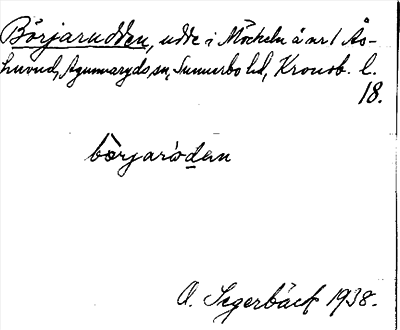 Börjarudden, udde i Möckeln å nr 1 Ås-
huvud, Agunnaryds sn, Sunnerbo hd, Kronob. l.
18.
börjaròden
A. Segerbäck 1938.